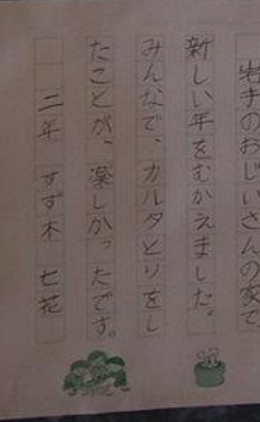 岩手のおじいさんの家で、
新しい年をむかえました。
みんなで、カルタとりをし
たことが、楽しかったです。
二年 すず木 七花